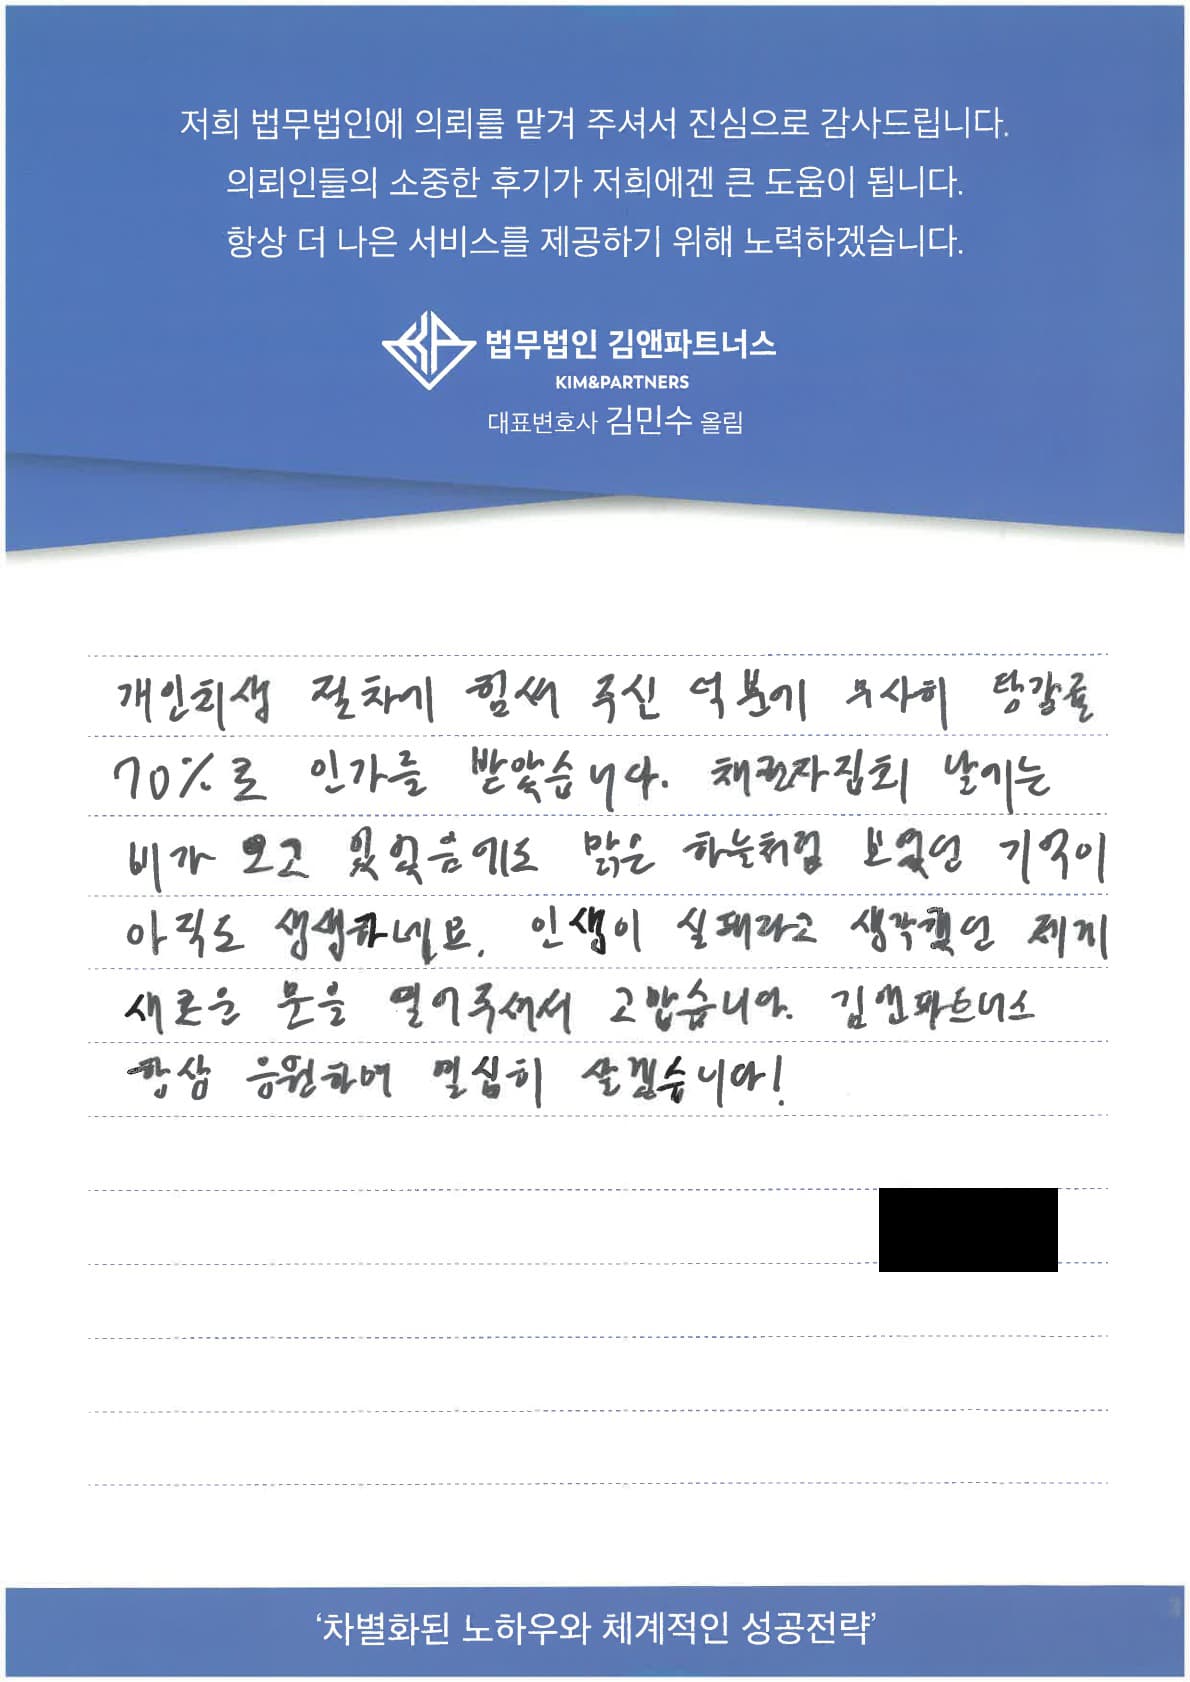 저희 법무법인에 의뢰를 맡겨 주셔서 진심으로 감사드립니다.
의뢰인들의 소중한 후기가 저희에겐 큰 도움이 됩니다.
항상 더 나은 서비스를 제공하기 위해 노력하겠습니다.
법무법인 김앤파트너스
KIM&PARTNERS
대표변호사 김민수 올림
개인회생 절차에 힘써 주신 덕분에 무사히 탕감률
70%로 인가를 받았습니다. 채권자집회 날에는
비가 오고 있었음에도 맑은 하늘처럼 보였던 기억이
아직도 생생하네요. 인생이 실패라고 생각했던 제게
새로운 문을 열어주셔서 고맙습니다. 김앤파트너스
항상 응원하며 열심히 살겠습니다!
‘차별화된 노하우와 체계적인 성공전략’